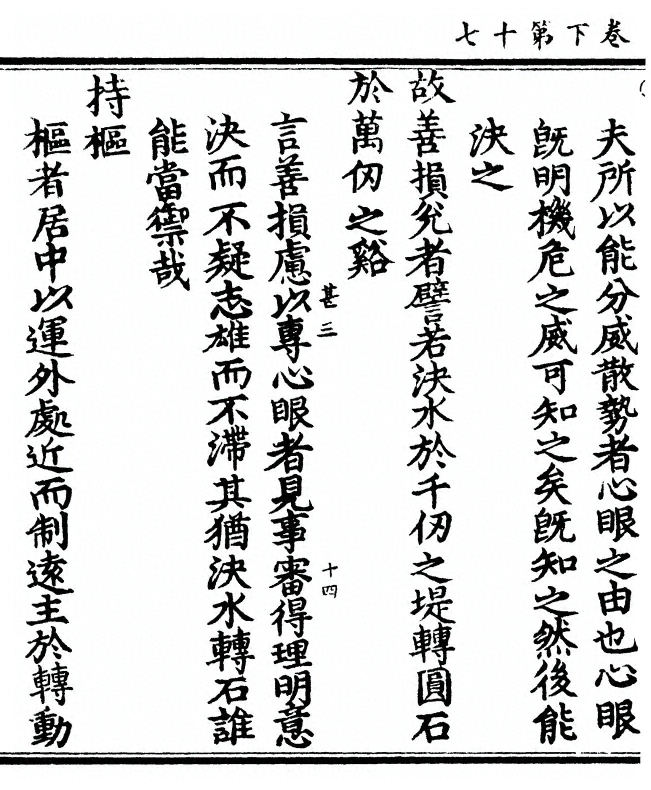 卷下第十七
夫所以能分威散勢者心眼之由也心眼
旣明機危之威可知之矣旣知之然後能
決之
故善損兌者譬若決水於千仞之堤轉圓石
於萬仞之谿
言善損慮以專心眼者見事審得理明意
甚三
十四
決而不疑志雄而不滯其猶決水轉石誰
能當禦哉
持樞
樞者居中以運外處近而制遠主於轉動